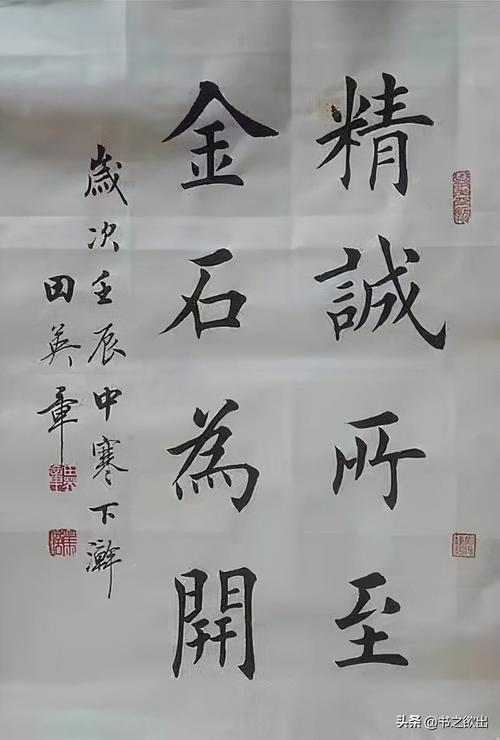 精誠所至
金石為開
歲次壬辰中寒下澣
田英章
头条 @书之欲出